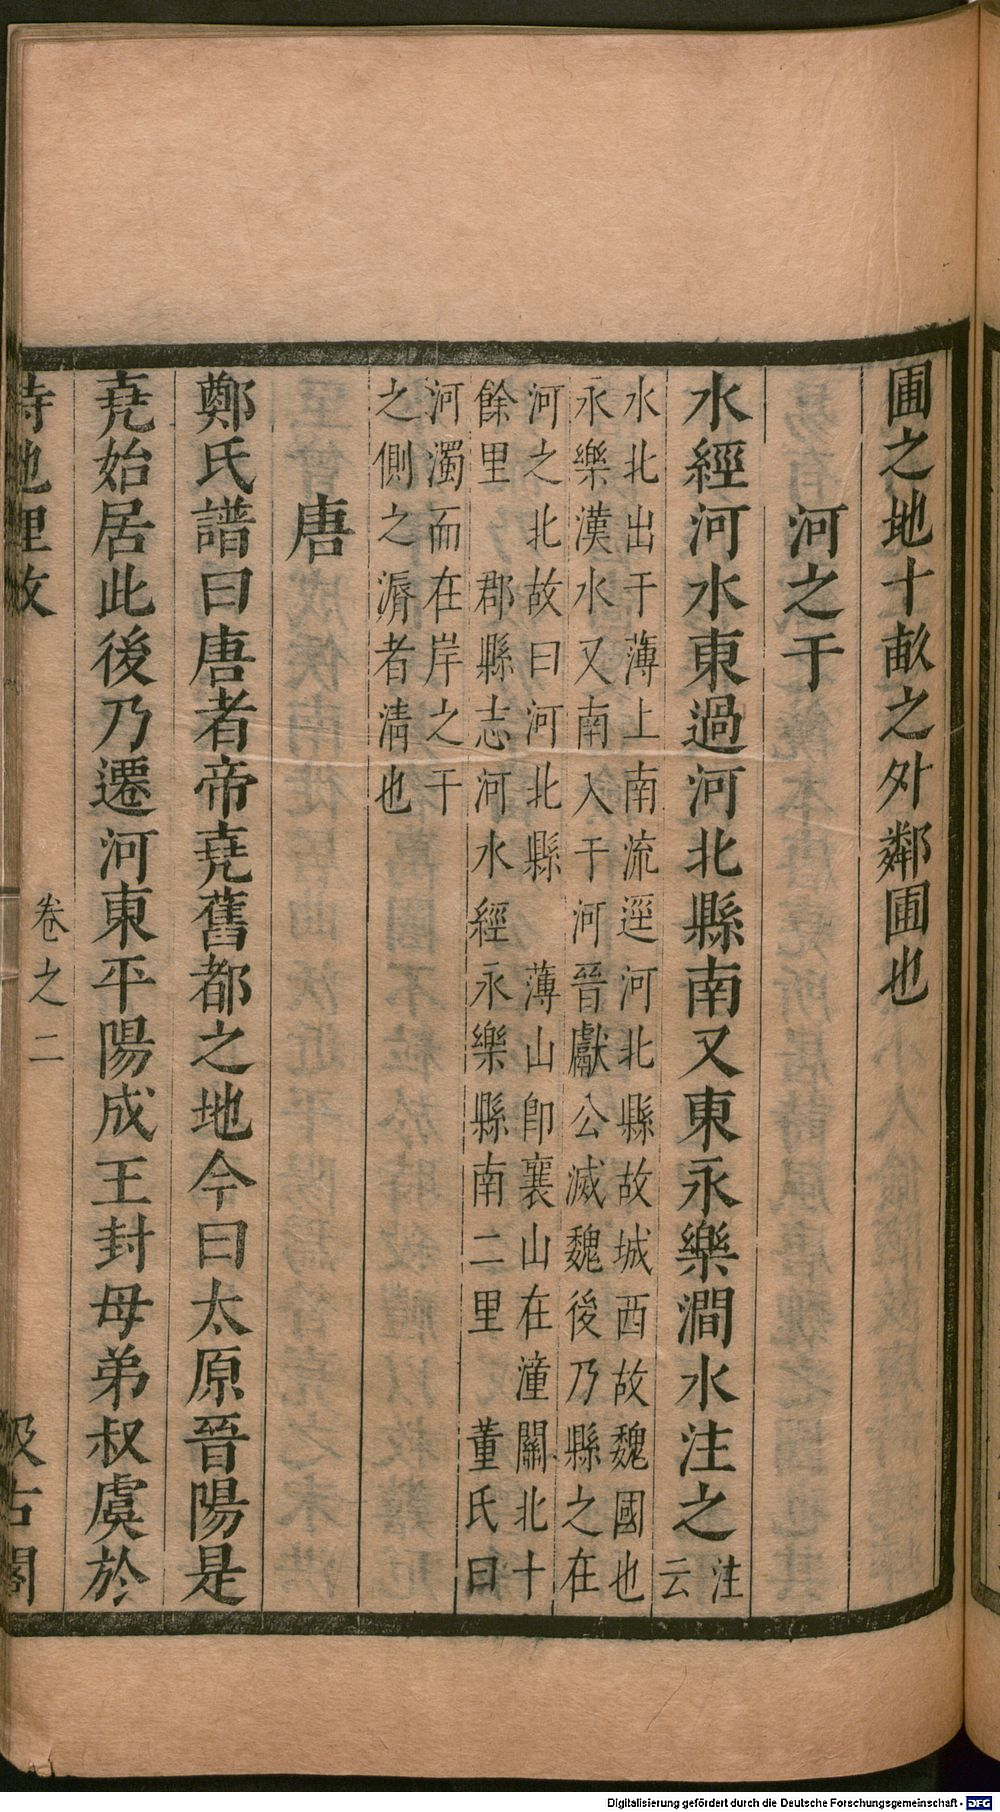 圃之地十畝之外鄰圃也
河之干
水經河水東過河北縣南又東永樂澗水注之注云
水北出于薄上南流逕河北縣故城西故魏國也
永樂漢水又南入于河晉獻公滅魏後乃縣之在
河之北故曰河北縣　薄山卽襄山在潼關北十
餘里　郡縣志河水經永樂縣南二里　董氏曰
河濁而在岸之干
之側之漘者清也
唐
鄭氏譜曰唐者帝堯舊都之地今曰太原晉陽是
堯始居此後乃遷河東平陽成王封母弟叔虞於
詩地理攷
卷之二
汲古閣
Digitalisierung gefördert durch die Deutsche Forschungsgemeinschaft - DFG